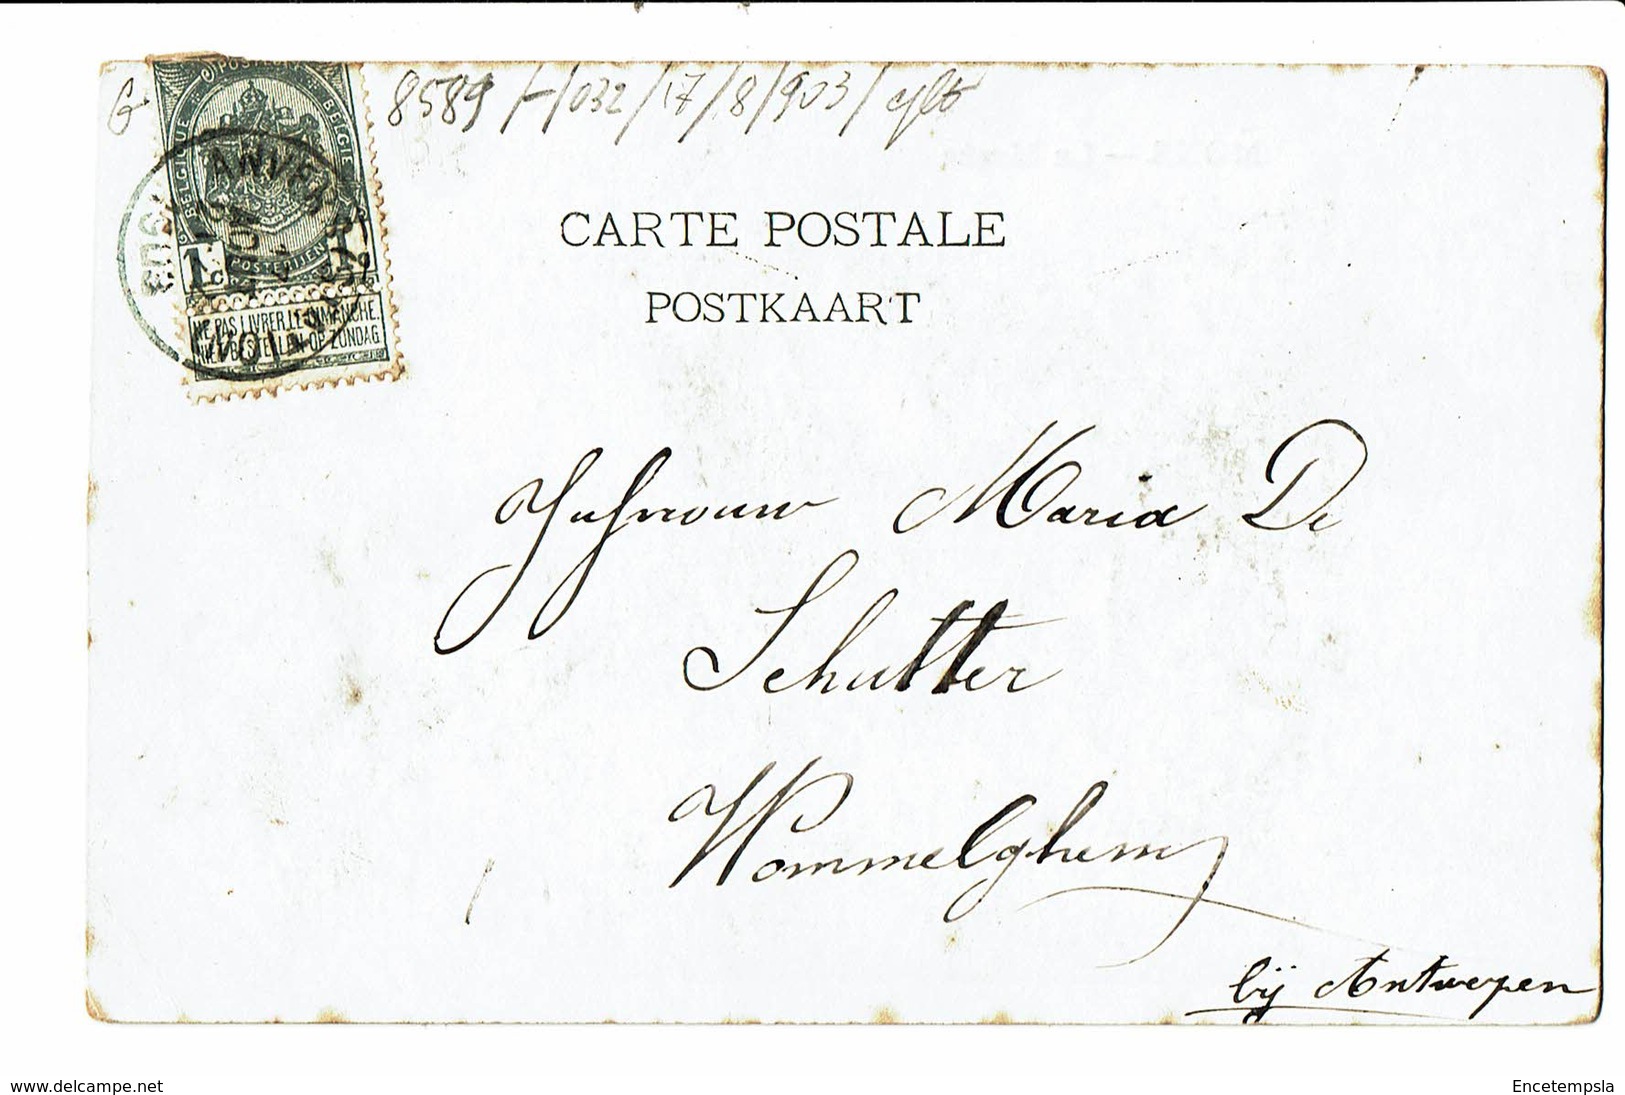 G 8589 /-/032/17/8/903/
POSTES
BELGIQUE BELGIE
POSTERIJEN
1c 1c
NE PAS LIVRER LE DIMANCHE
NIET BESTELLEN OP ZONDAG
ANVERS
1903
CARTE POSTALE
POSTKAART
Jufvrouw Maria De
Schutter
Wommelghem
bij Antwerpen
www.delcampe.net
Encetempsla